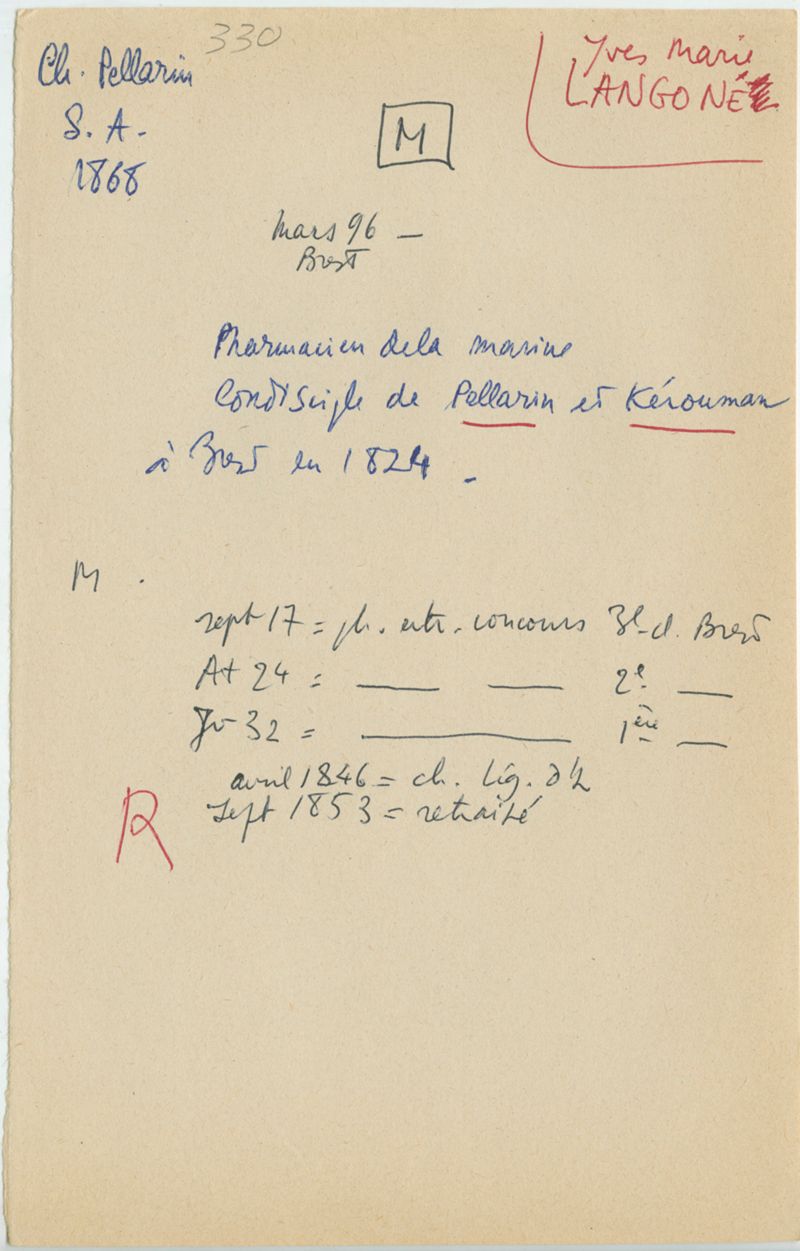 330
Ch. Pellarin
S. A.
1868
M
Yves Marie
LANGONÉ
mars 96 —
Brest
Pharmacien de la marine
Condisciple de Pellarin et Kérouman
à Brest en 1824 -
M .
sept 17 = ph. entr. concours 3e cl. Brest
At 24 = — — 2e —
Jr 32 = — 1ère —
avril 1846 = ch. Lég. d'h
R
sept 1853 = retraité